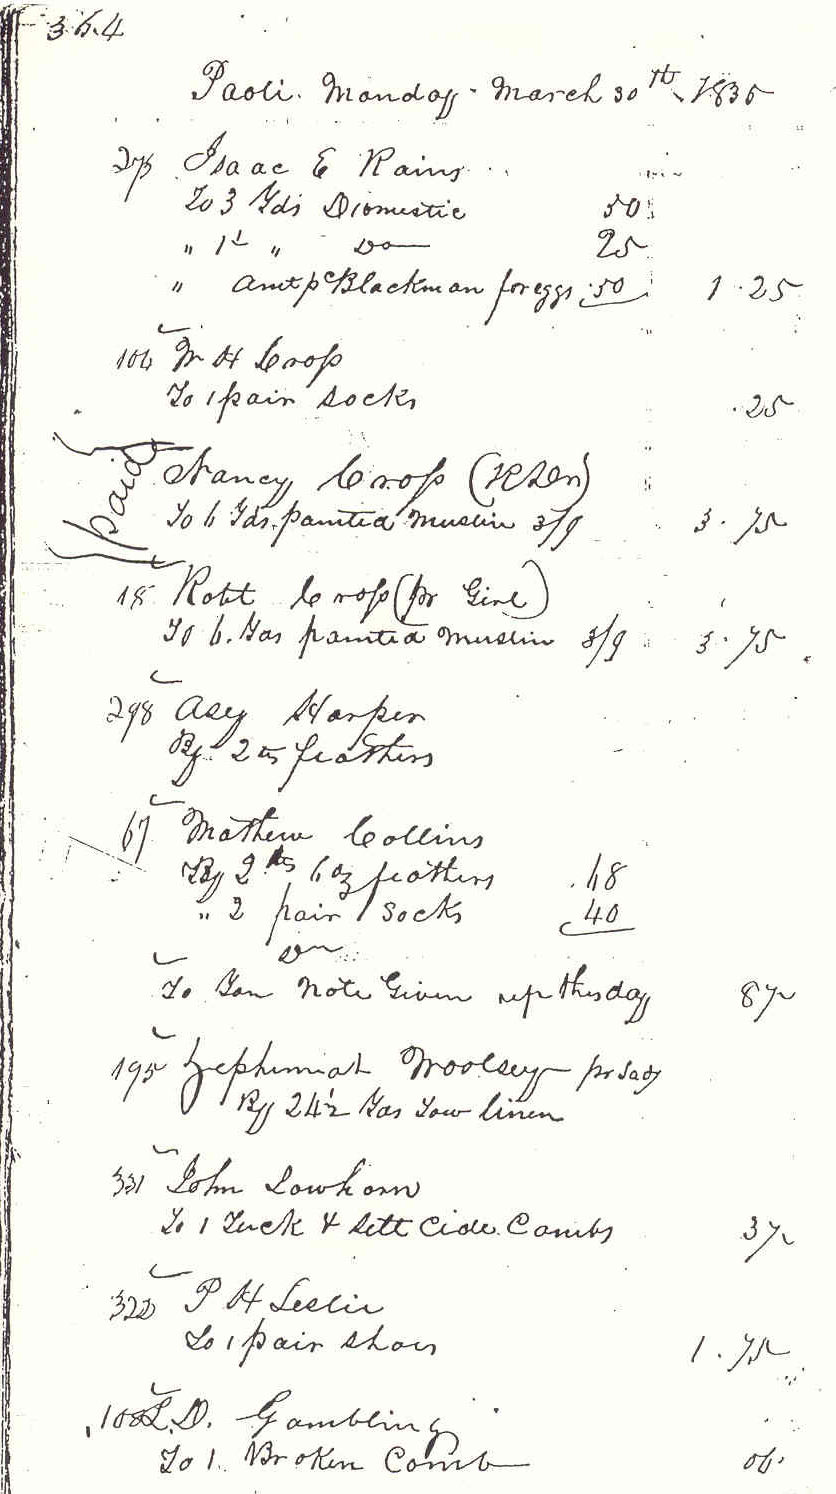 364
Paoli. Monday March 30th 1835
275 Isaac E Rains
To 3 Yds Domestic 50
" 1½ " Do 25
" Amt pd Blackman for eggs 50 1.25
104 W H Cross
To 1 pair socks .25
paid
Nancy Cross
To 6 Yds painted Muslin 3/9 3.75
18 Robt Cross (pr Girl)
To 6 Yds painted Muslin 3/9 3.75
298 Asey Harper
By 2 lbs feathers
67 Mathew Collins
By 2 lbs 6 oz feathers .68
" 2 pair Socks 40
Dr
To You Note Given up this day 87
195 Zephimiah Woolsey pr Lady
By 24½ Yds Tow linen
331 John Lowhorn
To 1 Tuck & Sett Cide Combs 37
322 P H Leslie
To 1 pair Shoes 1.75
108 L.D. Gambling
To 1 Broken Comb 06